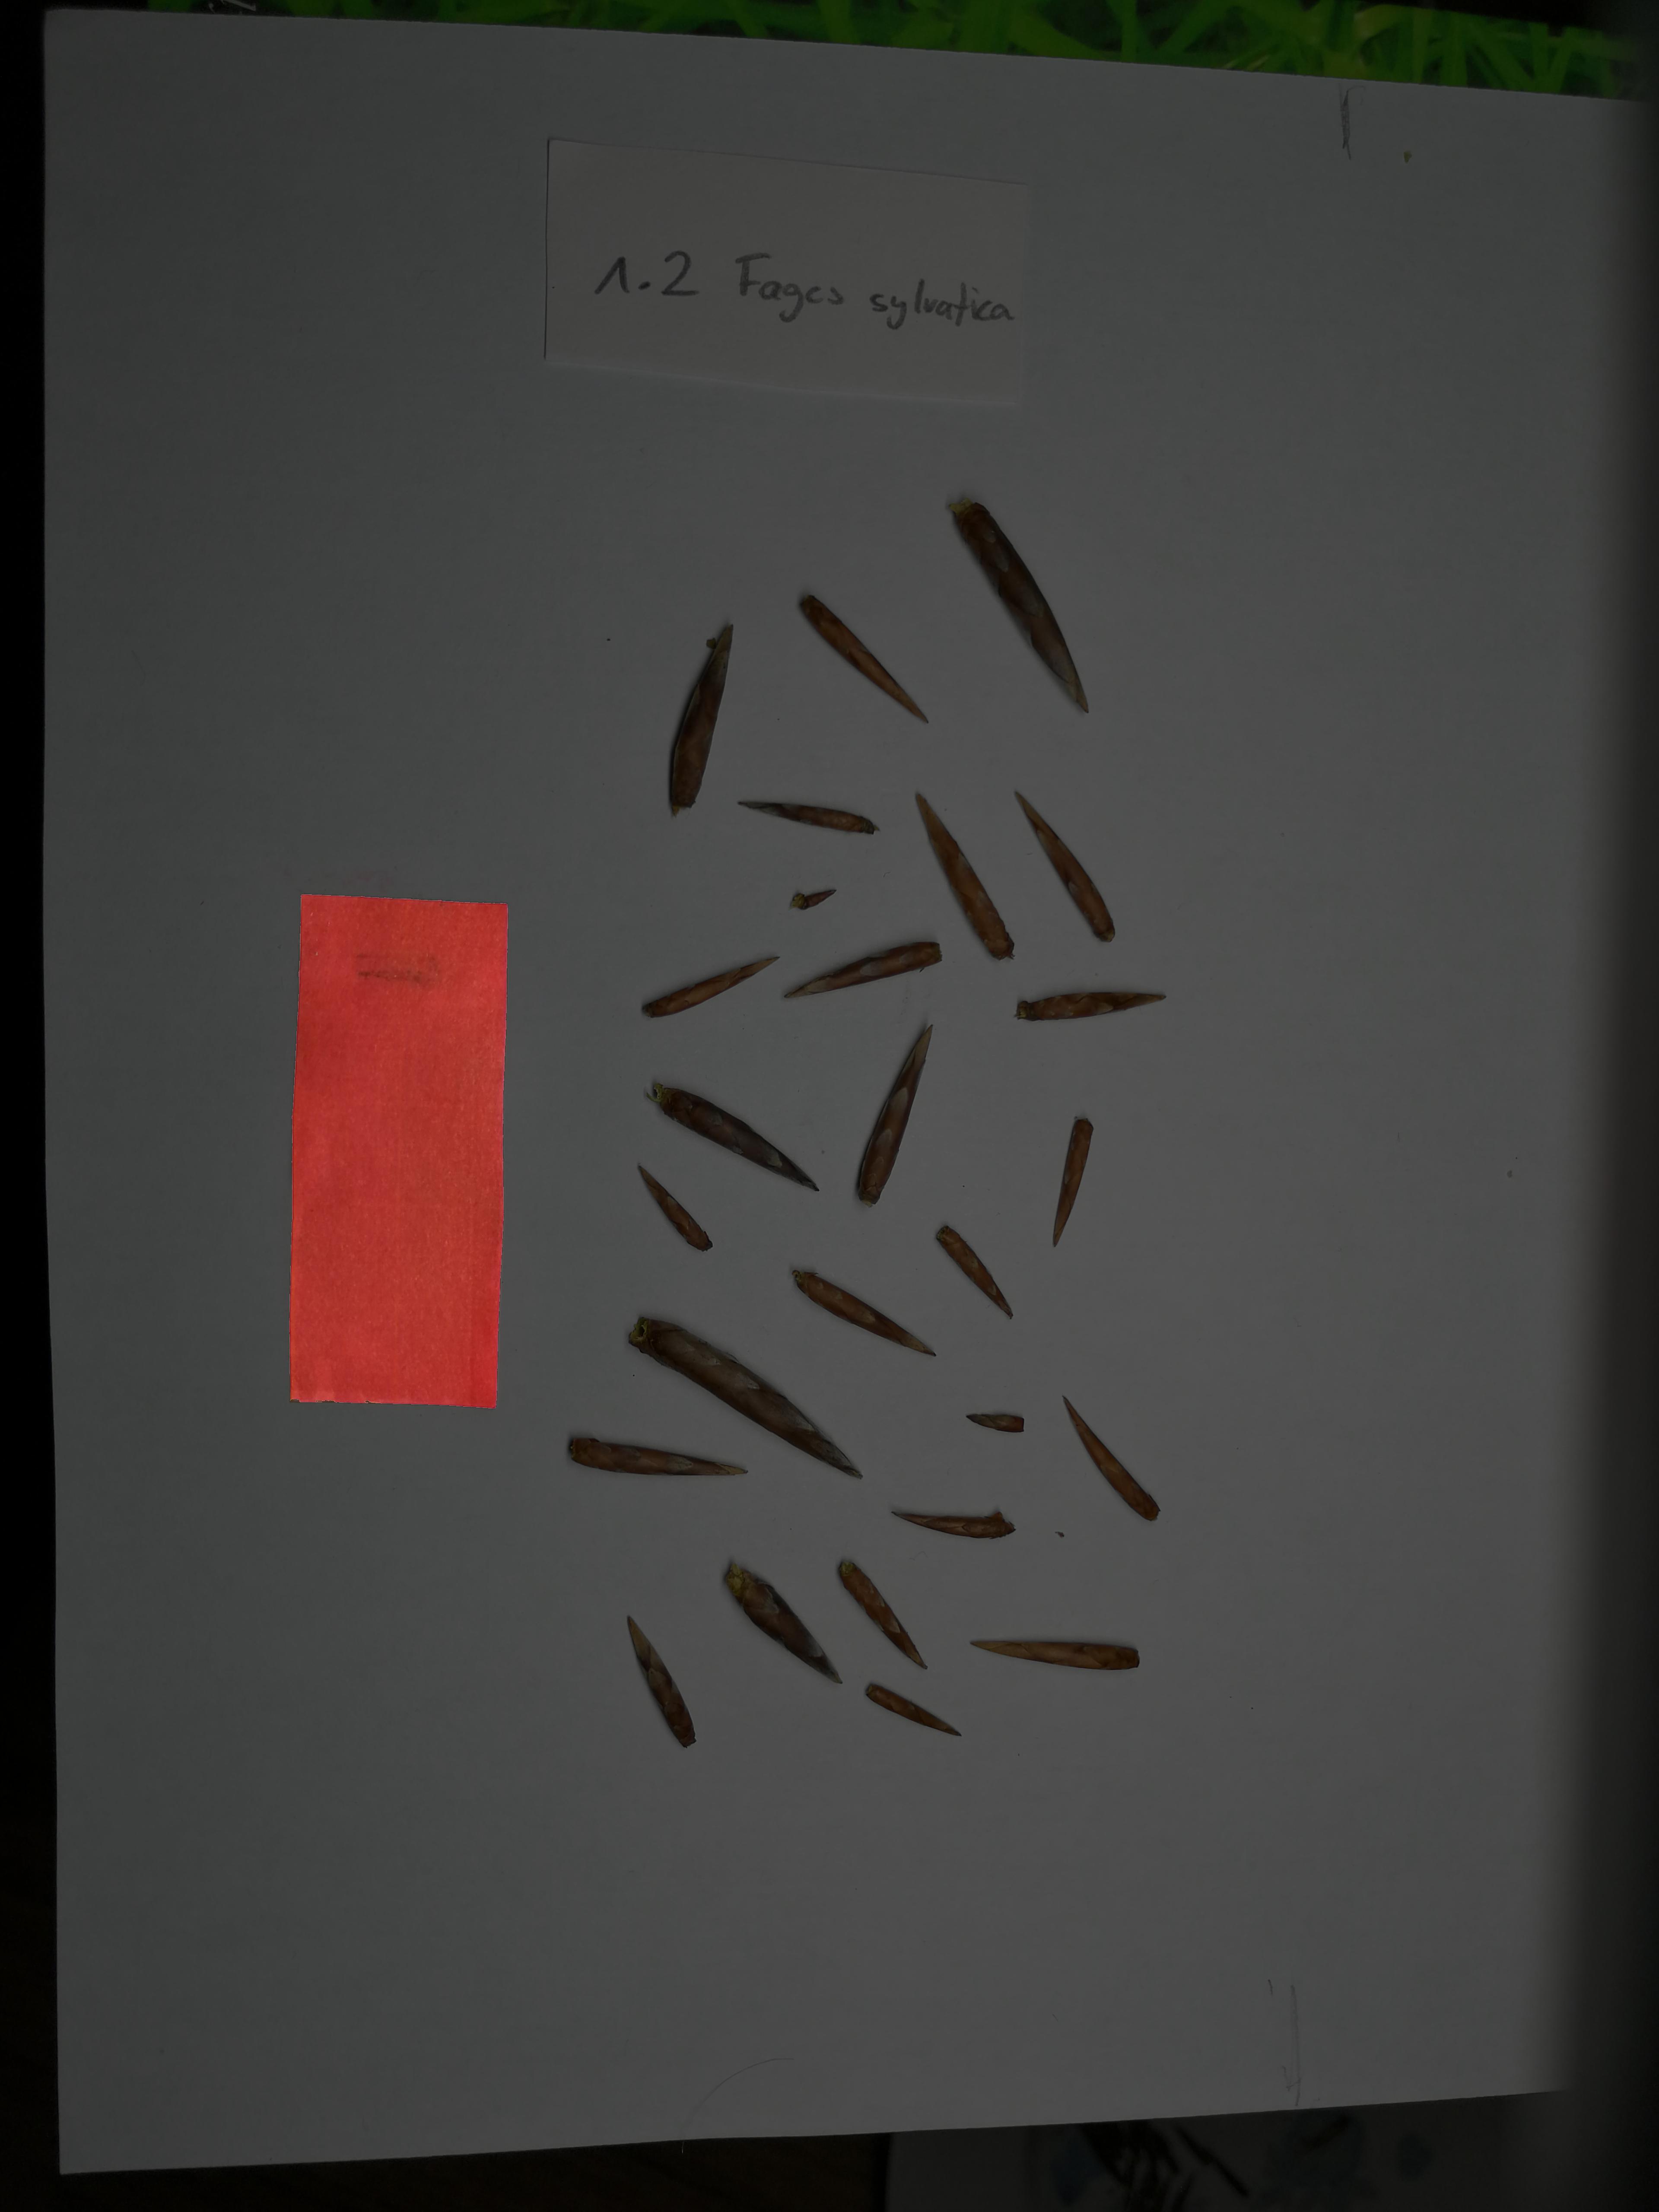 1.2 Fages sylvatica